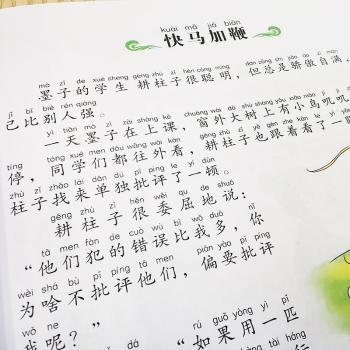 kuài mǎ jiā biān
快马加鞭
mò zǐ de xué sheng gēng zhù zǐ hěn cōng míng dàn zǒng shì jiāo ào zì mǎn
墨子的学生 耕柱子很聪明，但总是骄傲自满
jǐ bǐ bié rén qiáng
己比别人强。
yì tiān mò zǐ zài shàng kè chuāng wài dà shù shang yǒu xiǎo niǎo jī jī
一天墨子在上课，窗外大树上有小鸟叽叽
tíng tóng xué men dōu wǎng wài kàn gēng zhù zǐ yě gēn zhe kàn le yì
停，同学们都往外看，耕柱子也跟着看了一
zhù zǐ zhǎo lái dān dú pī píng le yí dùn
柱子找来单独批评了一顿。
gēng zhù zǐ hěn wěi qu de shuō
耕柱子很委屈地说：
tā men fàn de cuò wù bǐ wǒ duō nǐ
“他们犯的错误比我多，你
wèi shá bù pī píng tā men piān yào pī píng
为啥不批评他们，偏要批评
wǒ ne rú guǒ yòng yì pǐ
我呢？” “如果用一匹
tài háng
行